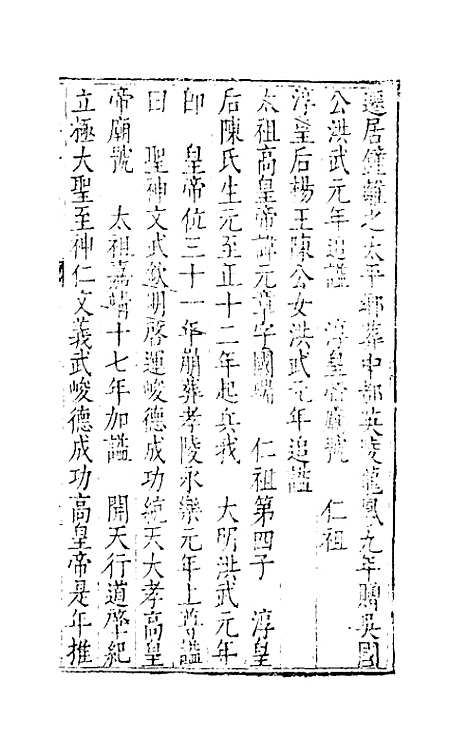 遷居鍾離之太平鄉葬中都英陵龍鳳九年贈吳國
公洪武元年追謚　淳皇帝廟號　仁祖
淳皇后楊王陳公女洪武元年追謚
太祖高皇帝諱元章字國瑞　仁祖第四子　淳皇
后陳氏生元至正十二年起兵我　大明洪武元年
卽　皇帝位三十一年崩葬孝陵永樂元年上尊謚
曰　聖神文武欽明啓運峻德成功統天大孝高皇
帝廟號　太祖嘉靖十七年加謚　開天行道肇紀
立極大聖至神仁文義武峻德成功高皇帝是年推